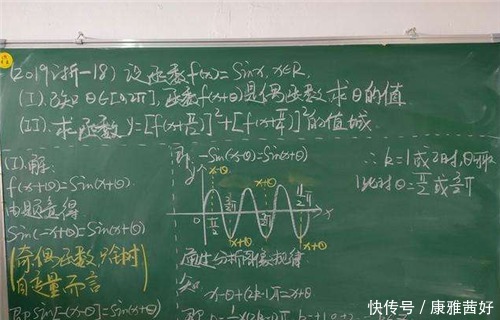 (2019浙-18) 设函数f(x)=Sinx, x∈R.
(I).已知θ∈[0,2π],函数f(x+θ)是偶函数 求θ的值
(II).求函数 y=[f(x+π/12)]²+[f(x+π/4)]²的值域
(I).解:
f(x+θ)=Sin(x+θ)
由题意得
Sin(-x+θ)=Sin(x+θ)
(奇偶函数只针对
自变量而言)
即Sin[-(x-θ)]=Sin(x+θ)
即 -Sin(x-θ)=Sin(x+θ)
y
x-θ
x-θ
0
π/2
x
x+θ
x+θ
x+θ
通过分析图像规律
x-θ+(2k-1)π=x+θ
∴ k=1或2时,
此时θ=π/2 或 3/2π
快传号 / 康雅茜好